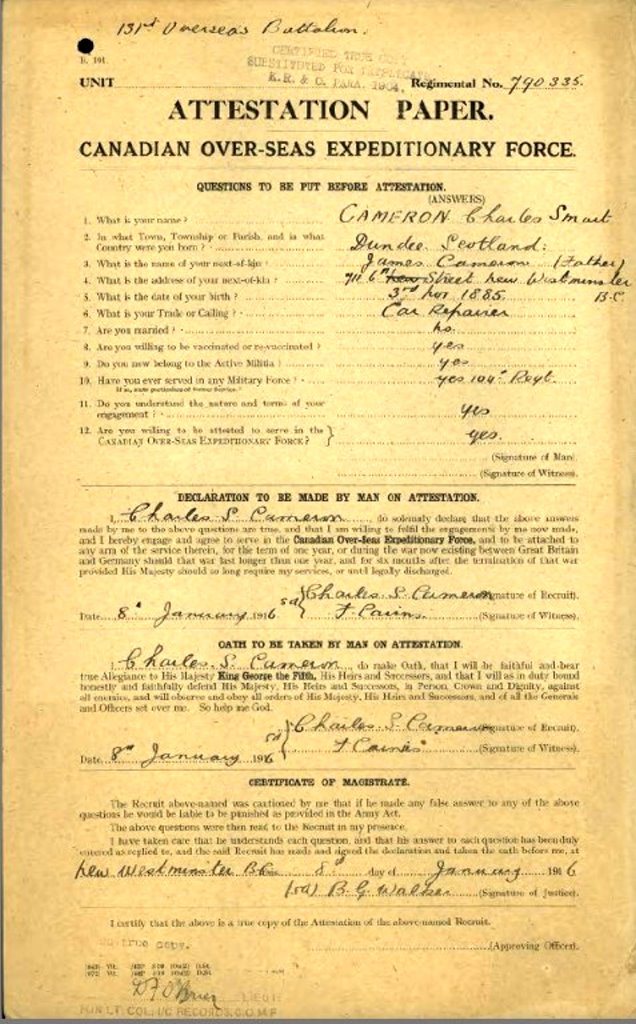 131st Overseas Battalion.
B. 101.
CERTIFIED TRUE COPY
SUBSTITUTED FOR
K.R. & O. PARA. 1904.
UNIT
Regimental No. 790335.
ATTESTATION PAPER.
CANADIAN OVER-SEAS EXPEDITIONARY FORCE.
QUESTIONS TO BE PUT BEFORE ATTESTATION.
(ANSWERS)
1. What is your name? CAMERON Charles Smart
2. In what Town, Township or Parish, and in what
Country were you born? Dundee Scotland.
3. What is the name of your next-of-kin? James Cameron (Father)
4. What is the address of your next-of-kin? 711 6th new Street New Westminster
B.C.
5. What is the date of your birth? 3rd Nov 1885.
6. What is your Trade or Calling? Car Repairer
7. Are you married? no.
8. Are you willing to be vaccinated or re-vaccinated? yes
9. Do you now belong to the Active Militia? yes
10. Have you ever served in any Military Force? yes 104th Regt.
If so, state particulars of former Service.
11. Do you understand the nature and terms of your
engagement? yes
12. Are you willing to be attested to serve in the
CANADIAN OVER-SEAS EXPEDITIONARY FORCE? yes.
(Signature of Man)
(Signature of Witness)
DECLARATION TO BE MADE BY MAN ON ATTESTATION.
I, Charles S. Cameron, do solemnly declare that the above answers
made by me to the above questions are true, and that I am willing to fulfil the engagements by me now made,
and I hereby engage and agree to serve in the Canadian Over-Seas Expeditionary Force, and to be attached to
any arm of the service therein, for the term of one year, or during the war now existing between Great Britain
and Germany should that war last longer than one year, and for six months after the termination of that war
provided His Majesty should so long require my services, or until legally discharged.
sd Charles S. Cameron (Signature of Recruit)
Date 8th January 1916 F Cairns (Signature of Witness)
OATH TO BE TAKEN BY MAN ON ATTESTATION.
I, Charles. S. Cameron, do make Oath, that I will be faithful and bear
true Allegiance to His Majesty King George the Fifth, His Heirs and Successors, and that I will as in duty bound
honestly and faithfully defend His Majesty, His Heirs and Successors, in Person, Crown and Dignity, against
all enemies, and will observe and obey all orders of His Majesty, His Heirs and Successors, and of all the Generals
and Officers set over me. So help me God.
sd Charles S Cameron (Signature of Recruit)
Date 8th January 1916 F Cairns (Signature of Witness)
CERTIFICATE OF MAGISTRATE.
The Recruit above-named was cautioned by me that if he made any false answer to any of the above
questions he would be liable to be punished as provided in the Army Act.
The above questions were then read to the Recruit in my presence.
I have taken care that he understands each question, and that his answer to each question has been duly
entered as replied to, and the said Recruit has made and signed the declaration and taken the oath before me, at
New Westminster B.C. this 8th day of January 1916
(sd) B. G. Walker (Signature of Justice)
I certify that the above is a true copy of the Attestation of the above-named Recruit.
TRUE COPY.
(Approving Officer)
D F O'Brien LIEUT
LT. COL. I/C RECORDS, C.O.M.F.